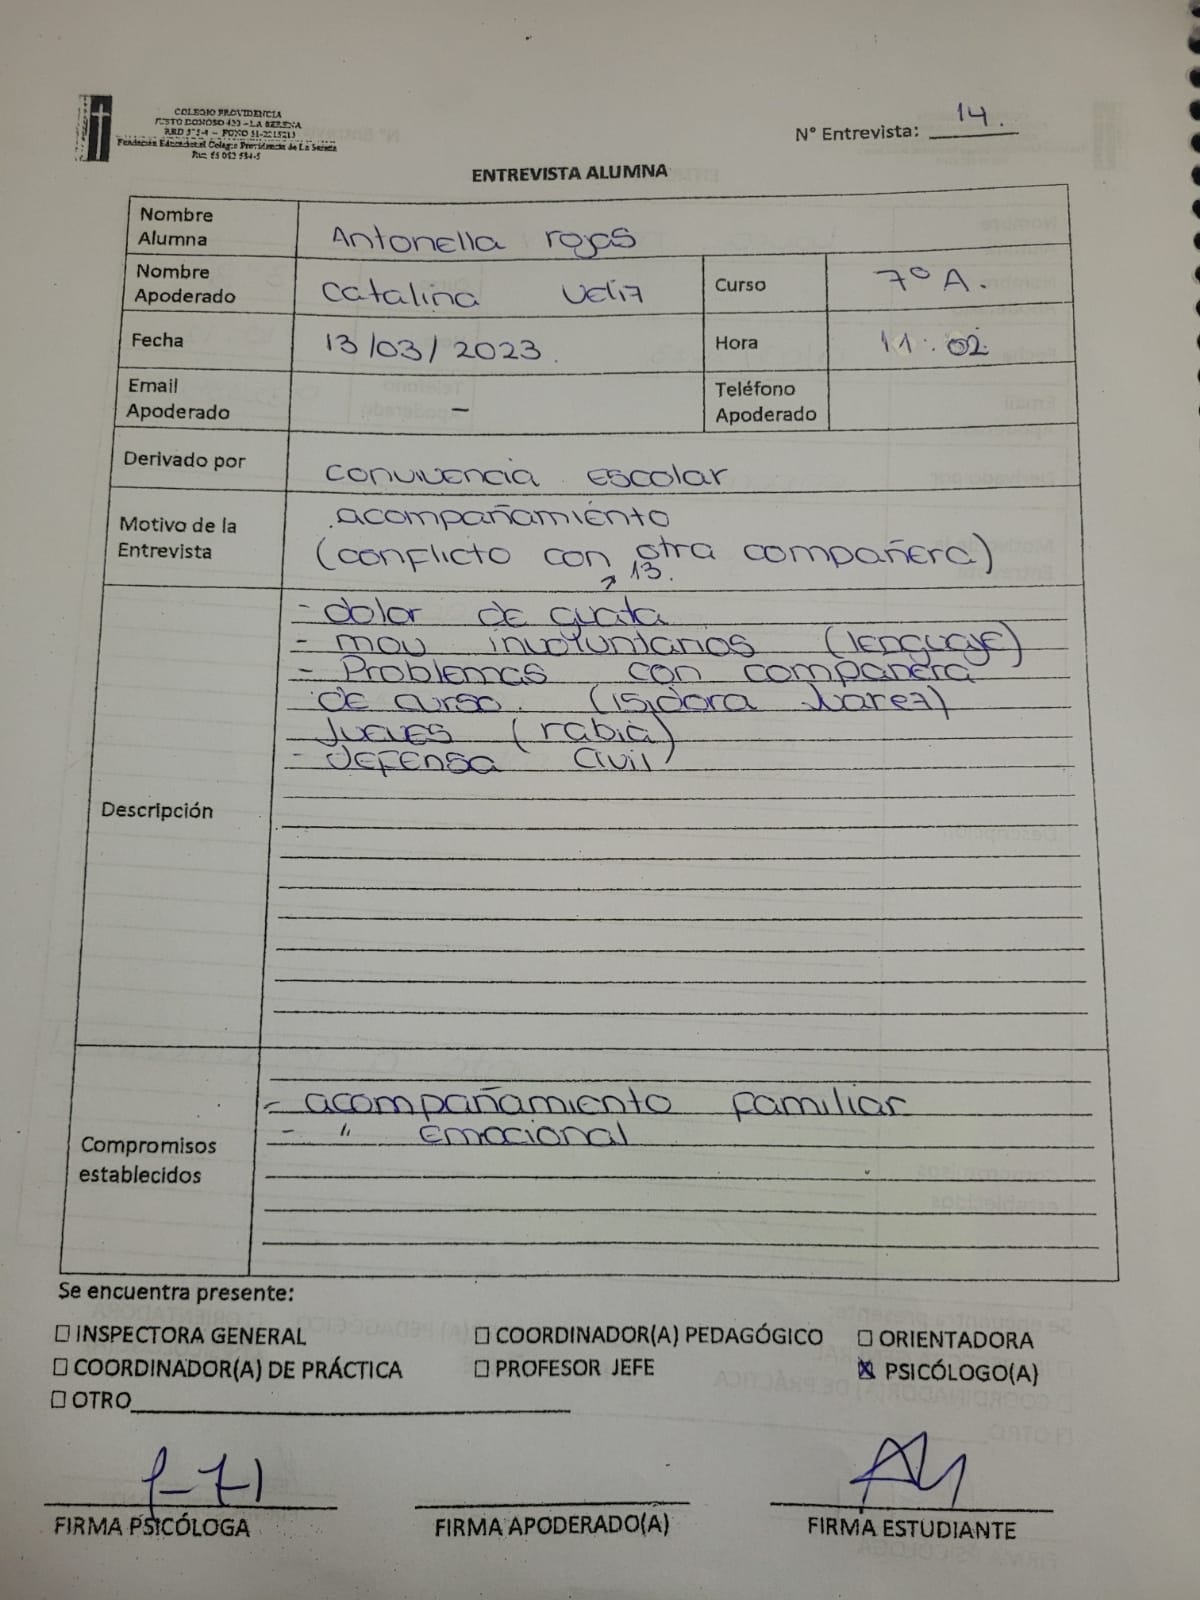 COLEGIO PROVIDENCIA
JUSTO DONOSO 420 - LA SERENA
Fundación Educacional Colegio Providencia de La Serena
N° Entrevista: 14.
ENTREVISTA ALUMNA
Nombre Alumna
Antonella rojas
Nombre Apoderado
Catalina Veliz
Curso
7º A.
Fecha
13/03/2023.
Hora
11:02
Email Apoderado
-
Teléfono Apoderado
Derivado por
convivencia escolar
Motivo de la Entrevista
acompañamiento
(conflicto con otra compañera)
→ 13.
Descripción
- dolor de guata
- mov involuntarios (lenguaje)
- Problemas con compañera
de curso. (Isidora Juarez)
Jueves (rabia)
- Defensa Civil
Compromisos establecidos
- acompañamiento familiar
- " Emocional
Se encuentra presente:
☐ INSPECTORA GENERAL ☐ COORDINADOR(A) PEDAGÓGICO ☐ ORIENTADORA
☐ COORDINADOR(A) DE PRÁCTICA ☐ PROFESOR JEFE ☒ PSICÓLOGO(A)
☐ OTRO
FIRMA PSICÓLOGA FIRMA APODERADO(A) FIRMA ESTUDIANTE